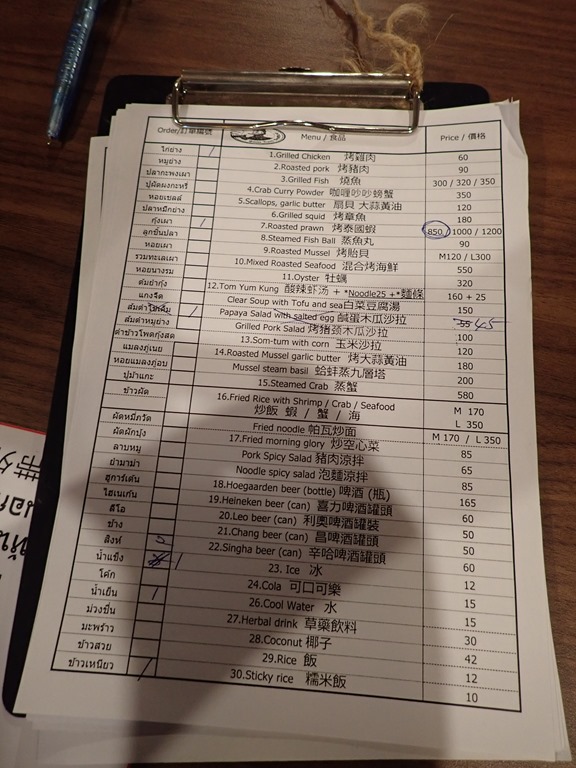 Order/訂單編號 Menu / 食品 Price / 價格
ไก่ย่าง / 1.Grilled Chicken 烤雞肉 60
หมูย่าง 2.Roasted pork 烤豬肉 90
ปลากะพงเผา 3.Grilled Fish 燒魚 300 / 320 / 350
ปูผัดผงกะหรี่ 4.Crab Curry Powder 咖喱吵吵螃蟹 320
หอยเชลล์ 5.Scallops, garlic butter 扇貝 大蒜黃油 120
ปลาหมึกย่าง 6.Grilled squid 烤章魚 180
กุ้งเผา / 7.Roasted prawn 烤泰國蝦 850/ 1000 / 1200
ลูกชิ้นปลา 8.Steamed Fish Ball 蒸魚丸 90
หอยเผา 9.Roasted Mussel 烤貽貝 M120 / L300
รวมทะเลเผา 10.Mixed Roasted Seafood 混合烤海鮮 550
หอยนางรม 11.Oyster 牡蠣 320
ต้มยำกุ้ง 12.Tom Yum Kung 酸辣虾汤 + *Noodle25 +*麵條 160 + 25
แกงจืด Clear Soup with Tofu and sea白菜豆腐湯 150
ส้มตำไข่เค็ม / Papaya Salad with salted egg 鹹蛋木瓜沙拉 55 45
ส้มตำหมูย่าง Grilled Pork Salad 烤猪颈木瓜沙拉 100
ตำข้าวโพดกุ้งสด 13.Som-tum with corn 玉米沙拉 120
แมลงภู่เนย 14.Roasted Mussel garlic butter 烤大蒜黃油 180
หอยแมลงภู่อบ Mussel steam basil 蛤蚌蒸九層塔 200
ปูม้าแกะ 15.Steamed Crab 蒸蟹 580
ข้าวผัด 16.Fried Rice with Shrimp / Crab / Seafood M 170
炒飯 蝦 / 蟹 / 海 L 350
Fried noodle 帕瓦炒面 M 170 / L 350
ผัดผักบุ้ง 17.Fried morning glory 炒空心菜 85
ลาบหมู Pork Spicy Salad 豬肉涼拌 65
ยำมาม่า Noodle spicy salad 泡麵涼拌 85
ฮูการ์เด้น 18.Hoegaarden beer (bottle) 啤酒 (瓶) 165
ไฮเนเก้น 19.Heineken beer (can) 喜力啤酒罐頭 60
ลีโอ 20.Leo beer (can) 利奧啤酒罐裝 50
ช้าง 21.Chang beer (can) 昌啤酒罐頭 50
สิงห์ 5 22.Singha beer (can) 辛哈啤酒罐頭 60
น้ำแข็ง 1 23. Ice 冰 12
โค้ก 24.Cola 可口可樂 15
น้ำเย็น 1 26.Cool Water 水 15
ม่วงชื่น 27.Herbal drink 草藥飲料 30
มะพร้าว 28.Coconut 椰子 42
ข้าวสวย 29.Rice 飯 12
ข้าวเหนียว / 30.Sticky rice 糯米飯 10